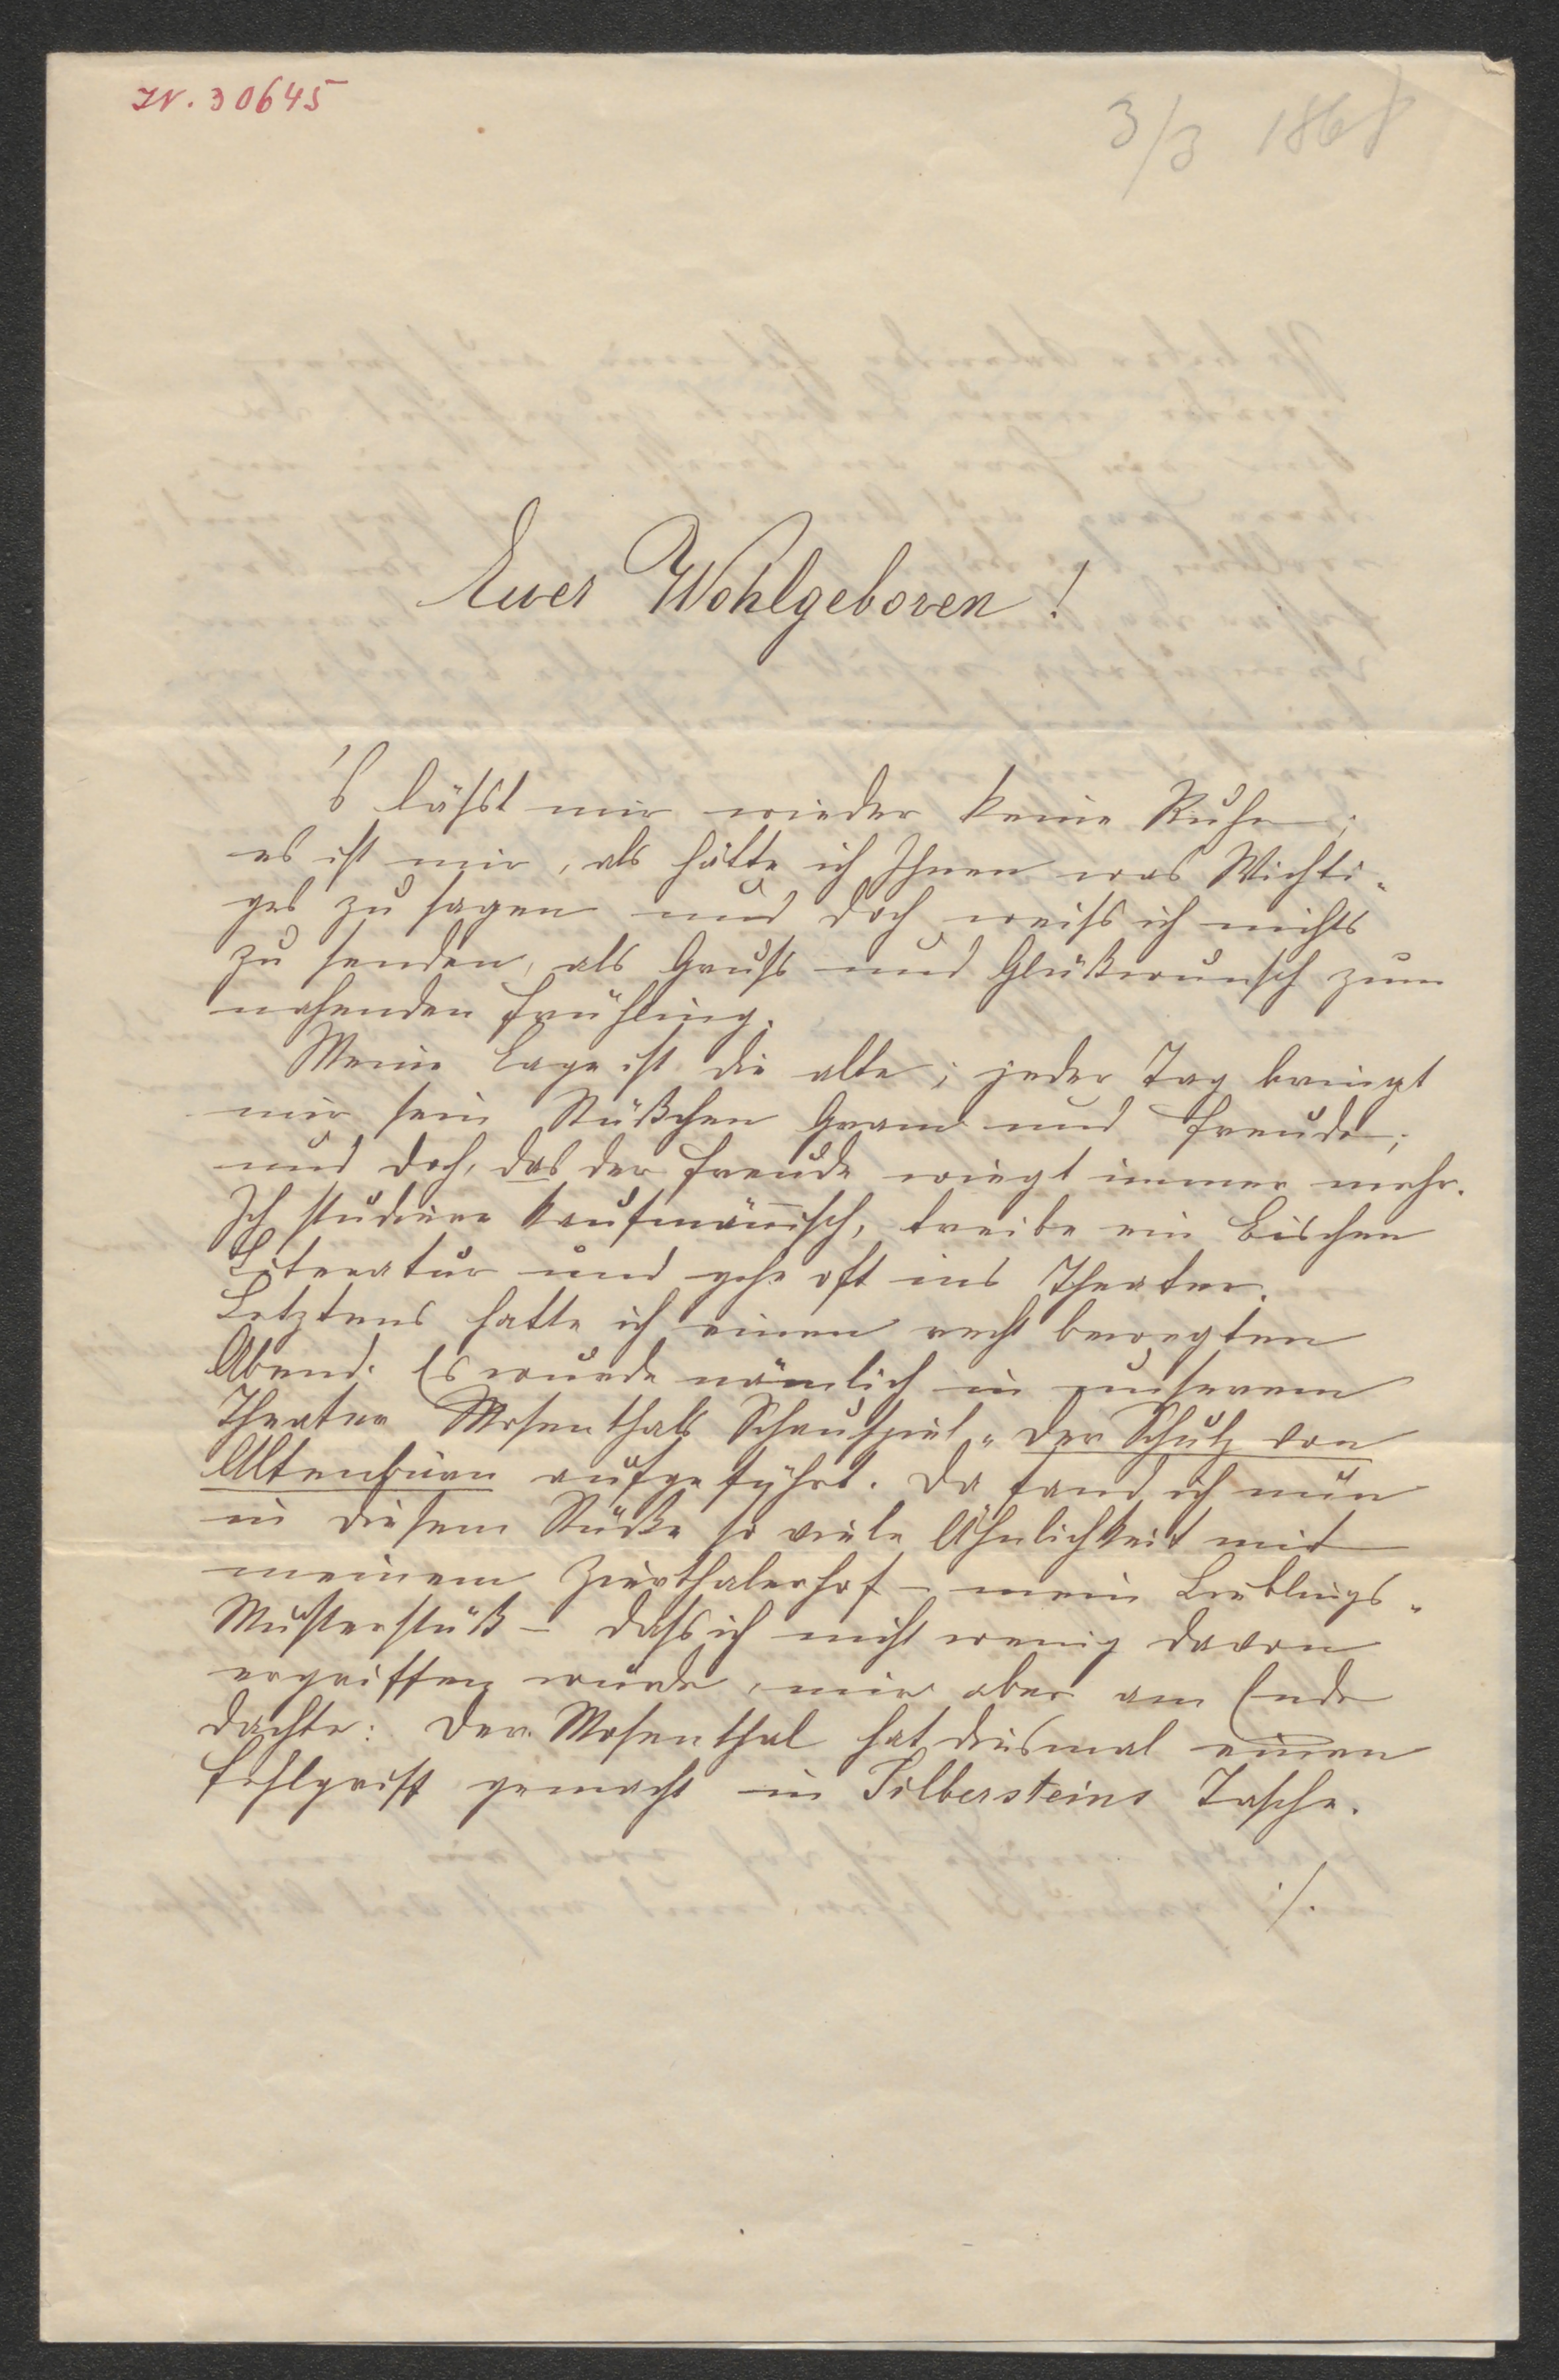 IN. 30645
3/3 1868
Euer Wohlgeboren!
's läßt mir wieder keine Ruhe;
es ist mir, als hätte ich Ihnen was Wichti-
ges zu sagen und doch weiß ich nichts
zu senden, als Gruß und Glükwunsch zum
nahenden Frühling.
Meine Lage ist die alte; jeder Tag bringt
mir sein Stükchen Gram und Freude;
und doch, das der Freude wiegt immer mehr.
Ich studiere kaufmännisch, treibe ein Bischen
Literatur und gehe oft ins Theater.
Letztens hatte ich einen recht bewegten
Abend. Es wurde nämlich in unserem
Theater Mosenthals Schauspiel „Der Schulz von
Altenbüren aufgeführt. Da fand ich nun
in diesem Stüke so viele Ähnlichkeit mit
meinem Zierthalerhof – mein Lieblings-
Musterstük – daß ich nicht wenig davon
ergriffen wurde, mir aber am Ende
dachte: Der Mosenthal hat diesmal einen
Fehlgriff gemacht in Silbersteins Tasche.
./.